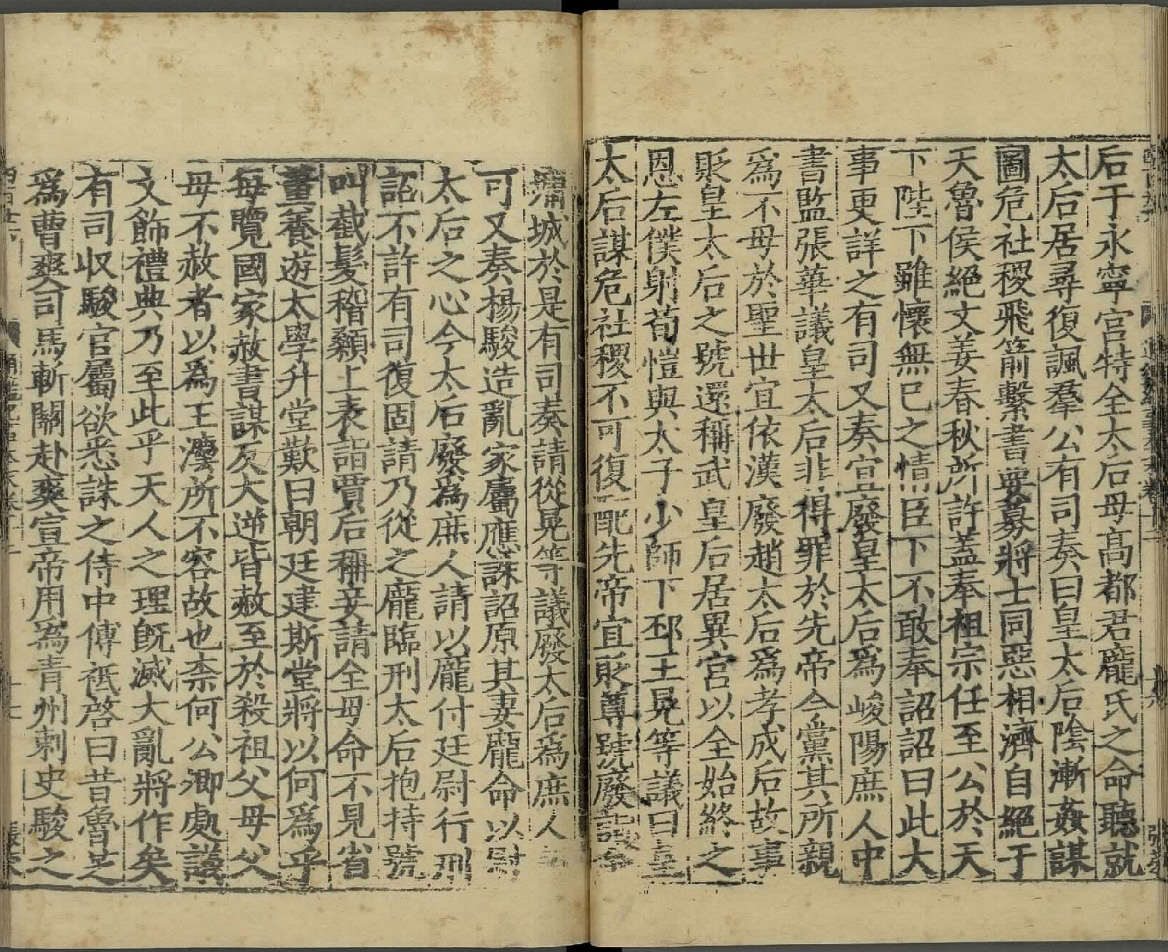 后于永寧宮特全太后母髙都君龐氏之命聽就
太后居尋復諷羣公有司奏曰皇太后陰漸姦謀
圖危社稷飛箭繫書要募將士同惡相濟自絕于
天魯侯絕文姜春秋所許蓋奉祖宗任至公於天
下陛下雖懷無已之情臣下不敢奉詔詔曰此大
事更詳之有司又奏宜廢皇太后爲峻陽庶人中
書監張華議皇太后非得罪於先帝今黨其所親
爲不母於聖世宜依漢廢趙太后爲孝成后故事
貶皇太后之號還稱武皇后居異宮以全始終之
恩左僕射荀愷與太子少師下邳王晃等議曰皇
太后謀危社稷不可復配先帝宜貶尊號廢詣金
墉城於是有司奏請從晃等議廢太后爲庶人
可又奏楊駿造亂家屬應誅詔原其妻龐命以慰
太后之心今太后廢爲庶人請以龐付廷尉行刑
詔不許有司復固請乃從之龐臨刑太后抱持號
叫截髮稽顙上表詣賈后稱妾請全母命不見省
董養遊太學升堂歎曰朝廷建斯堂將以何爲乎
每覽國家赦書謀反大逆皆赦至於殺祖父母父
母不赦者以爲王灋所不容故也柰何公卿處議
文飾禮典乃至此乎天人之理旣滅大亂將作矣
有司收駿官屬欲悉誅之侍中傅祗啓曰昔魯芝
爲曹爽司馬斬關赴爽宣帝用爲青州刺史駿之